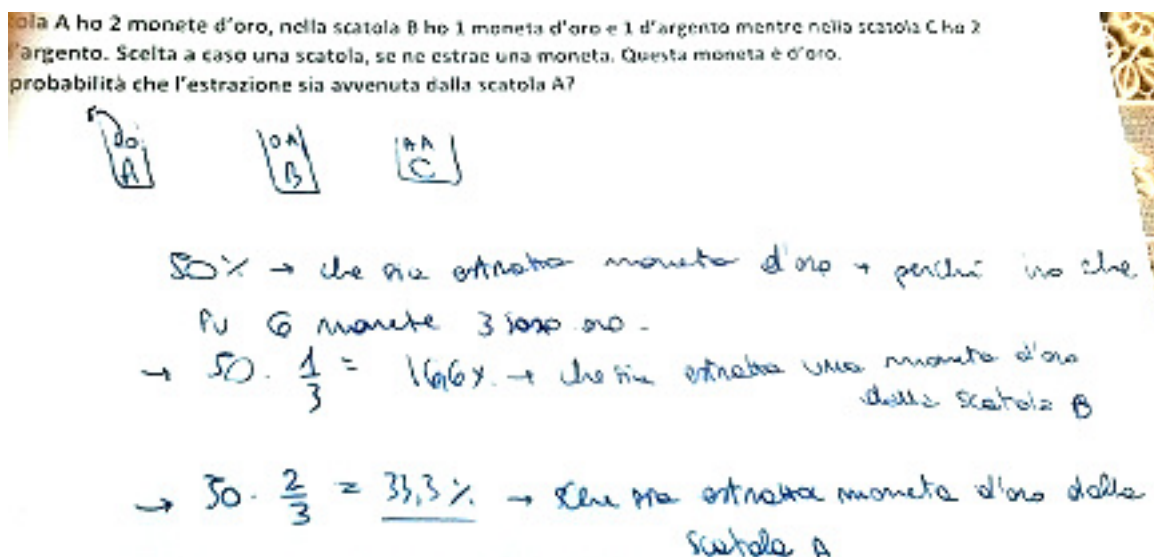 ola A ho 2 monete d'oro, nella scatola B ho 1 moneta d'oro e 1 d'argento mentre nella scatola C ho 2
'argento. Scelta a caso una scatola, se ne estrae una moneta. Questa moneta è d'oro.
probabilità che l'estrazione sia avvenuta dalla scatola A?
OO OA AA
A B C
50% → che sia estratta moneta d'oro → perché so che
su 6 monete 3 sono oro.
→ 50 · 1/3 = 16,6%. → che sia estratta una moneta d'oro
dalla scatola B
→ 50 · 2/3 = 33,3% → che sia estratta moneta d'oro dalla
scatola A